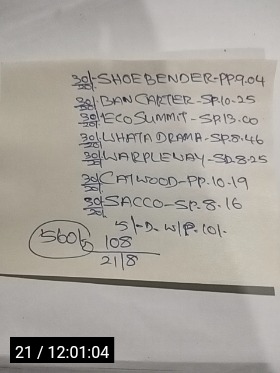 30/20/- SHOEBENDER-PP9.04
30/20/- BANCARTER-SP.10-25
30/20/- ECOSUMMIT-SP.13.00
30/20/- WHATADRAMA-SP.8.46
30/20/- WARPLEWAY-SP.8-25
30/20/- CATWOOD-PP.10-19
30/20/- SACCO-SP.8.16
5/-D. W/P. 10/-
560/-
108
21/8
21 / 12:01:04